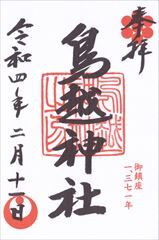 奉拝
御鎮座
一、三七一年
鳥越神社
令和四年二月十一日